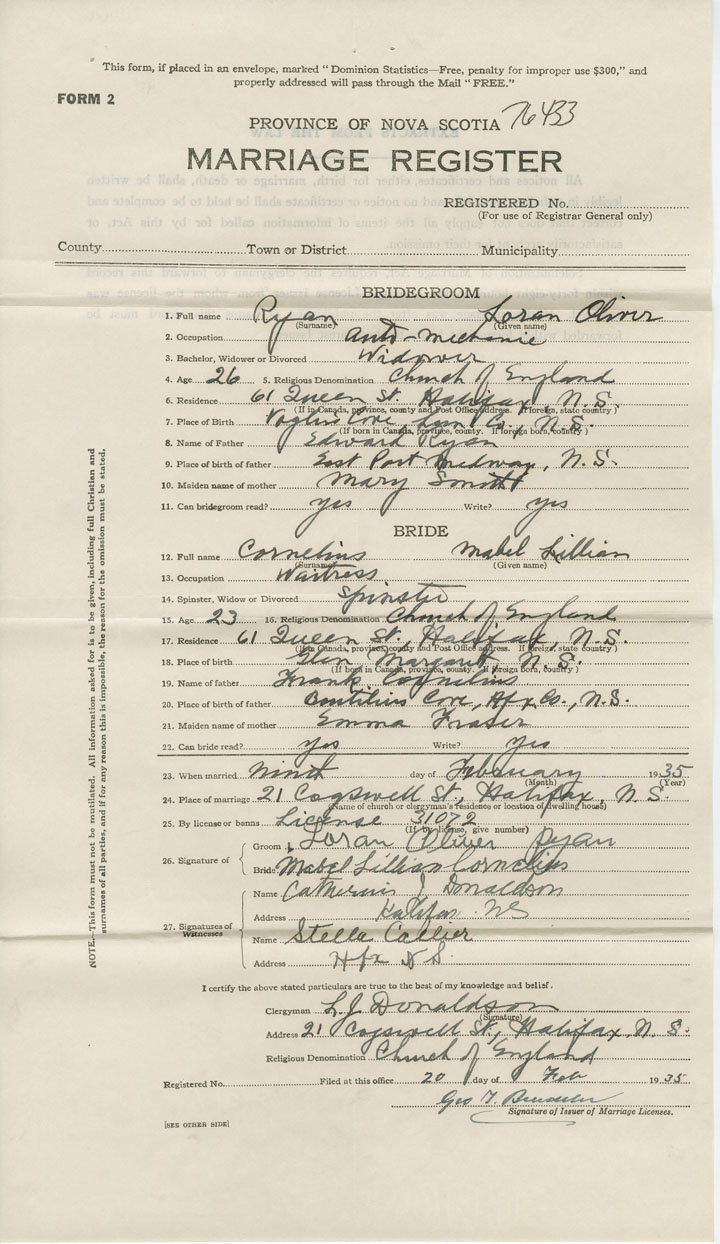 This form, if placed in an envelope, marked " Dominion Statistics—Free, penalty for improper use $300," and
properly addressed will pass through the Mail " FREE."
FORM 2
PROVINCE OF NOVA SCOTIA 76433
MARRIAGE REGISTER
REGISTERED No.
(For use of Registrar General only)
County Town or District Municipality
BRIDEGROOM
1. Full name Ryan Loran Oliver
(Surname) (Given name)
2. Occupation Auto-mechanic
3. Bachelor, Widower or Divorced Widower
4. Age 26 5. Religious Denomination Church of England
6. Residence 61 Queen St. Halifax, N.S.
(If in Canada, province, county and Post Office address. If foreign, state country)
7. Place of Birth Voglers Cove, Lun Co., N.S.
(If born in Canada, province, county. If foreign born, country)
8. Name of Father Edward Ryan
9. Place of birth of father East Port Medway, N.S.
10. Maiden name of mother Mary Smith
11. Can bridegroom read? yes Write? yes
BRIDE
12. Full name Cornelius Mabel Lillian
(Surname) (Given name)
13. Occupation Waitress
14. Spinster, Widow or Divorced Spinster
15. Age 23 16. Religious Denomination Church of England
17. Residence 61 Queen St., Halifax, N.S.
(If in Canada, province, county and Post Office address. If foreign, state country)
18. Place of birth Glen Margaret, N.S.
(If born in Canada, province, county. If foreign born, country)
19. Name of father Frank Cornelius
20. Place of birth of father Cove, Hfx Co., N.S.
21. Maiden name of mother Emma Fraser
22. Can bride read? yes Write? Yes
23. When married Ninth day of February 1935
(Month) (Year)
24. Place of marriage 21 Cogswell St., Halifax, N.S.
(Name of church or clergyman's residence or location of dwelling house)
25. By license or banns License 31072
(If by license, give number)
26. Signature of Groom Loran Oliver Ryan
Bride Mabel Lillian Cornelius
27. Signatures of Witnesses
Name Catherine J Donaldson
Address Halifax NS
Name Stella Collier
Address Hfx N S.
I certify the above stated particulars are true to the best of my knowledge and belief.
Clergyman L.J. Donaldson
(Signature)
Address 21 Cogswell St., Halifax, N. S.
Religious Denomination Church of England
Registered No. Filed at this office 20 day of Feb 1935
Geo T.
Signature of Issuer of Marriage Licenses.
[SEE OTHER SIDE]
NOTE.—This form must not be mutilated. All information asked for is to be given, including full Christian and
surnames of all parties, and if for any reason this is impossible, the reason for the omission must be stated.